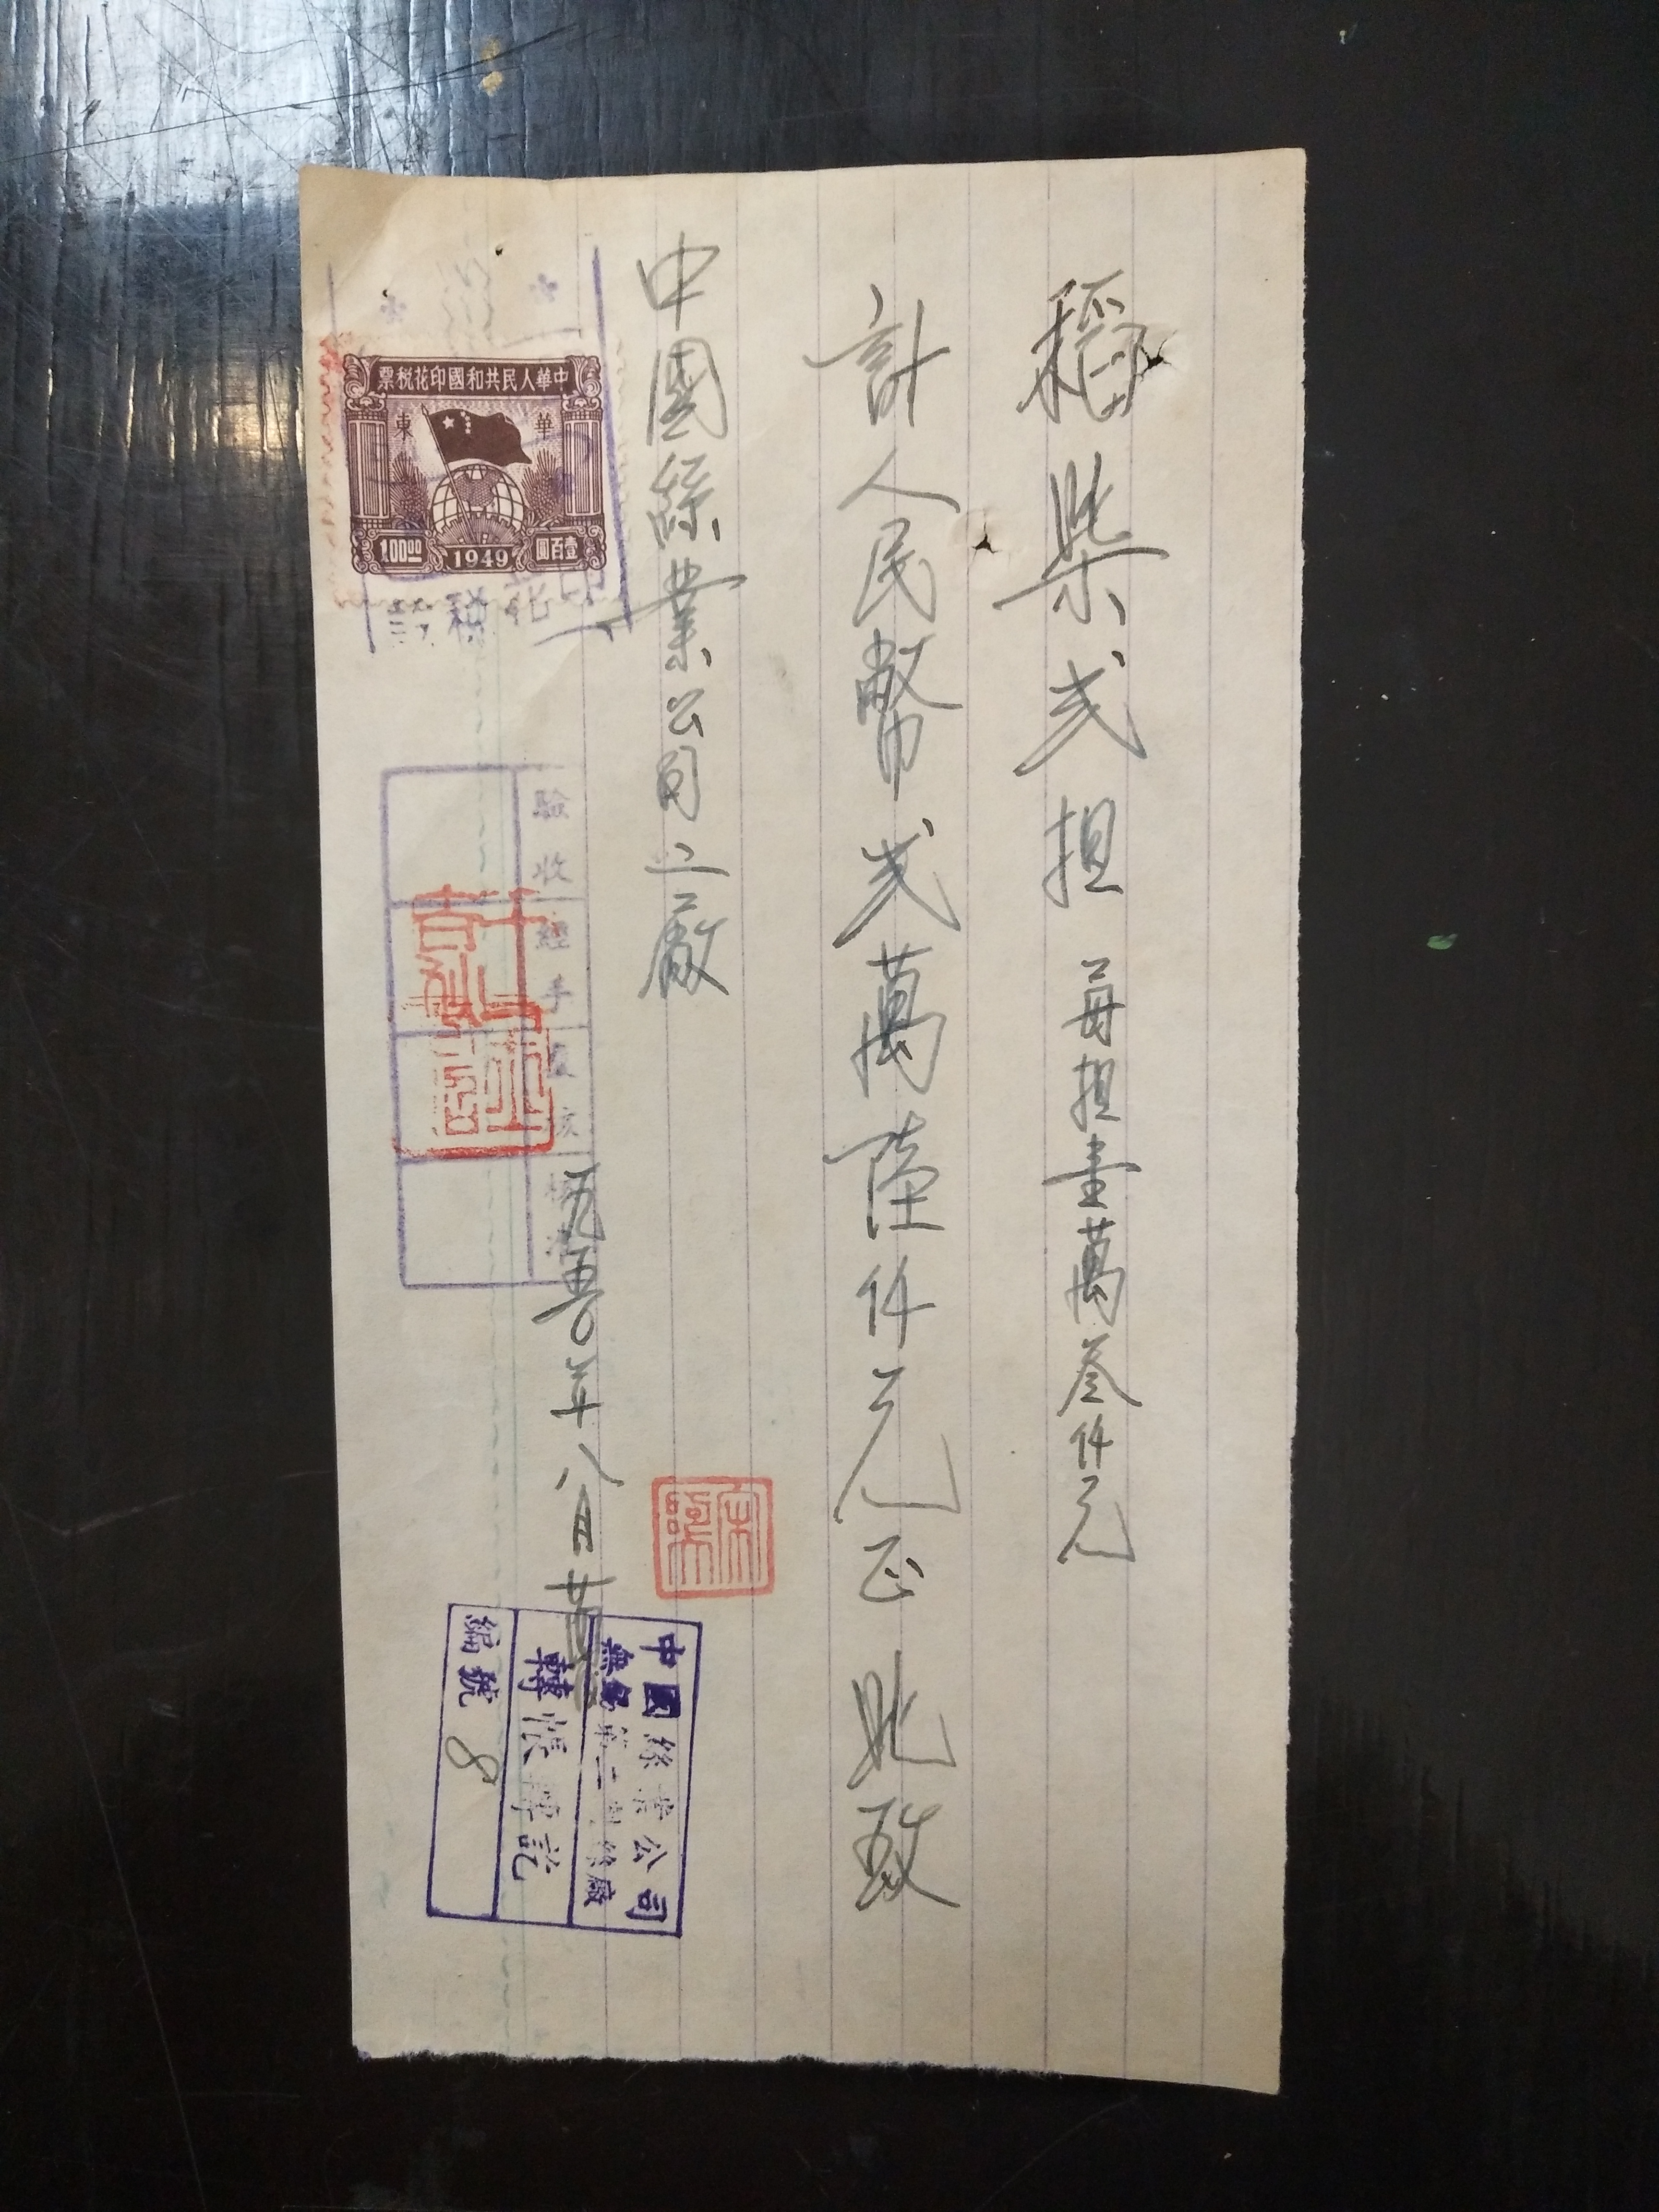 稻柴弍担 每担壹萬叁仟元
計人民幣弍萬陸仟元正 此致
中國絲業公司二廠
一九五〇年八月廿
中華人民共和國印花稅票
華東
100.00
1949
壹百圓
驗收
經手
覆核
中國絲業公司
無錫第二製絲廠
轉帳單訖
編號 8